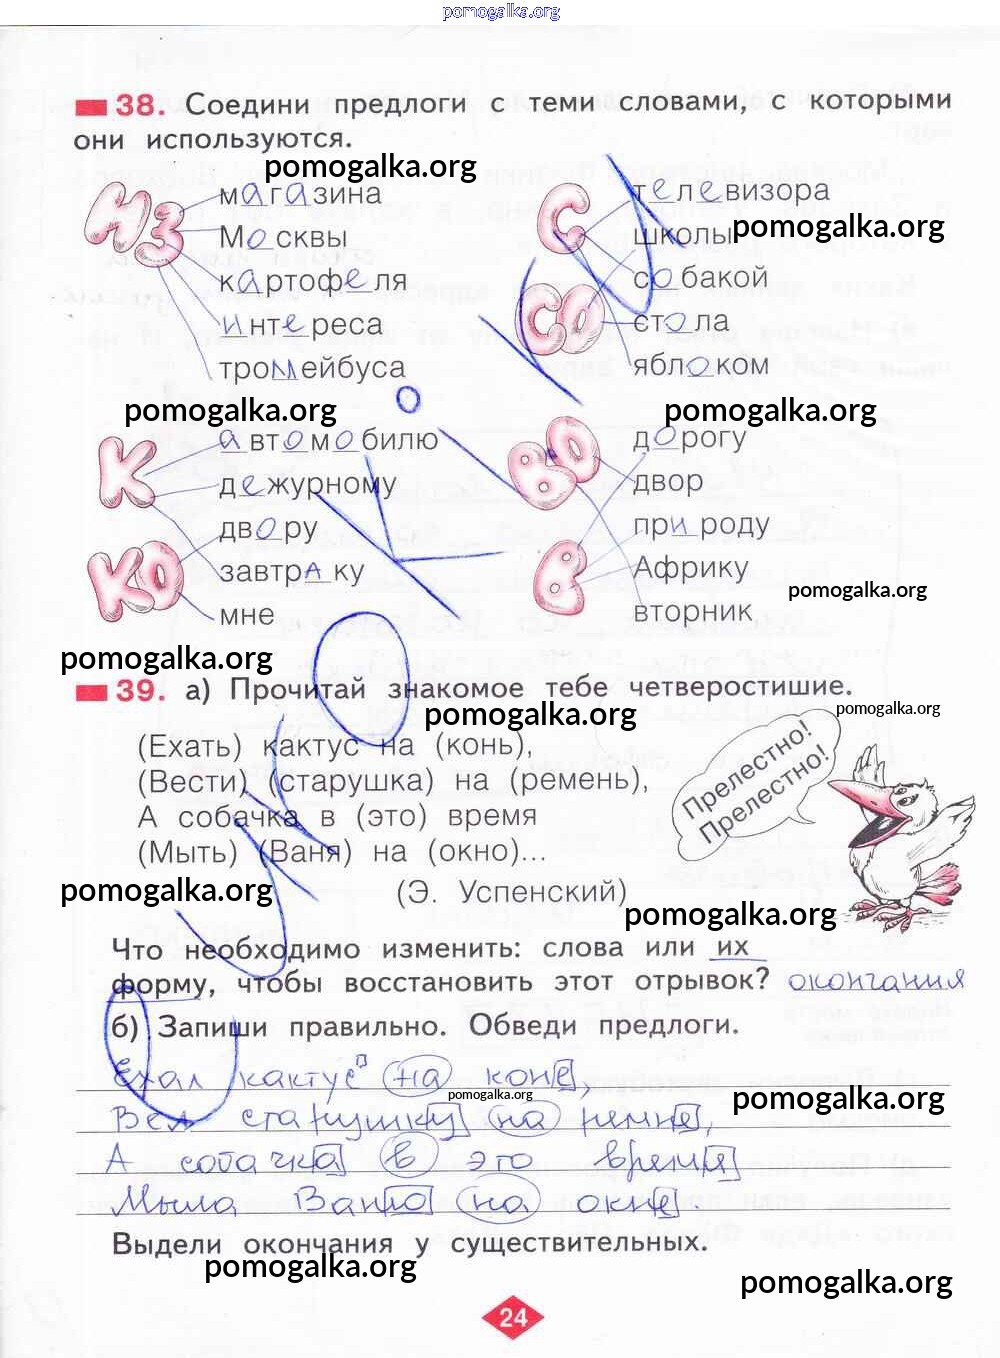 pomogalka.org
38. Соедини предлоги с теми словами, с которыми
они используются.
pomogalka.org
ИЗ
магазина
Москвы
картофеля
интереса
тромейбуса
С
СО
телевизора
школы
pomogalka.org
собакой
стола
яблоком
pomogalka.org
pomogalka.org
К
КО
автомобилю
дежурному
двору
завтраку
мне
ВО
В
дорогу
двор
природу
Африку
pomogalka.org
вторник
pomogalka.org
39. а) Прочитай знакомое тебе четверостишие.
pomogalka.org
pomogalka.org
(Ехать) кактус на (конь),
(Вести) (старушка) на (ремень),
А собачка в (это) время
(Мыть) (Ваня) на (окно)...
(Э. Успенский)
Прелестно!
Прелестно!
pomogalka.org
pomogalka.org
Что необходимо изменить: слова или их
форму, чтобы восстановить этот отрывок? окончания
б) Запиши правильно. Обведи предлоги.
Ехал кактус на коне,
pomogalka.org
pomogalka.org
Вёл старушку на ремне,
А собачка в это время
Мыла Ваню на окне.
Выдели окончания у существительных.
pomogalka.org
pomogalka.org
24